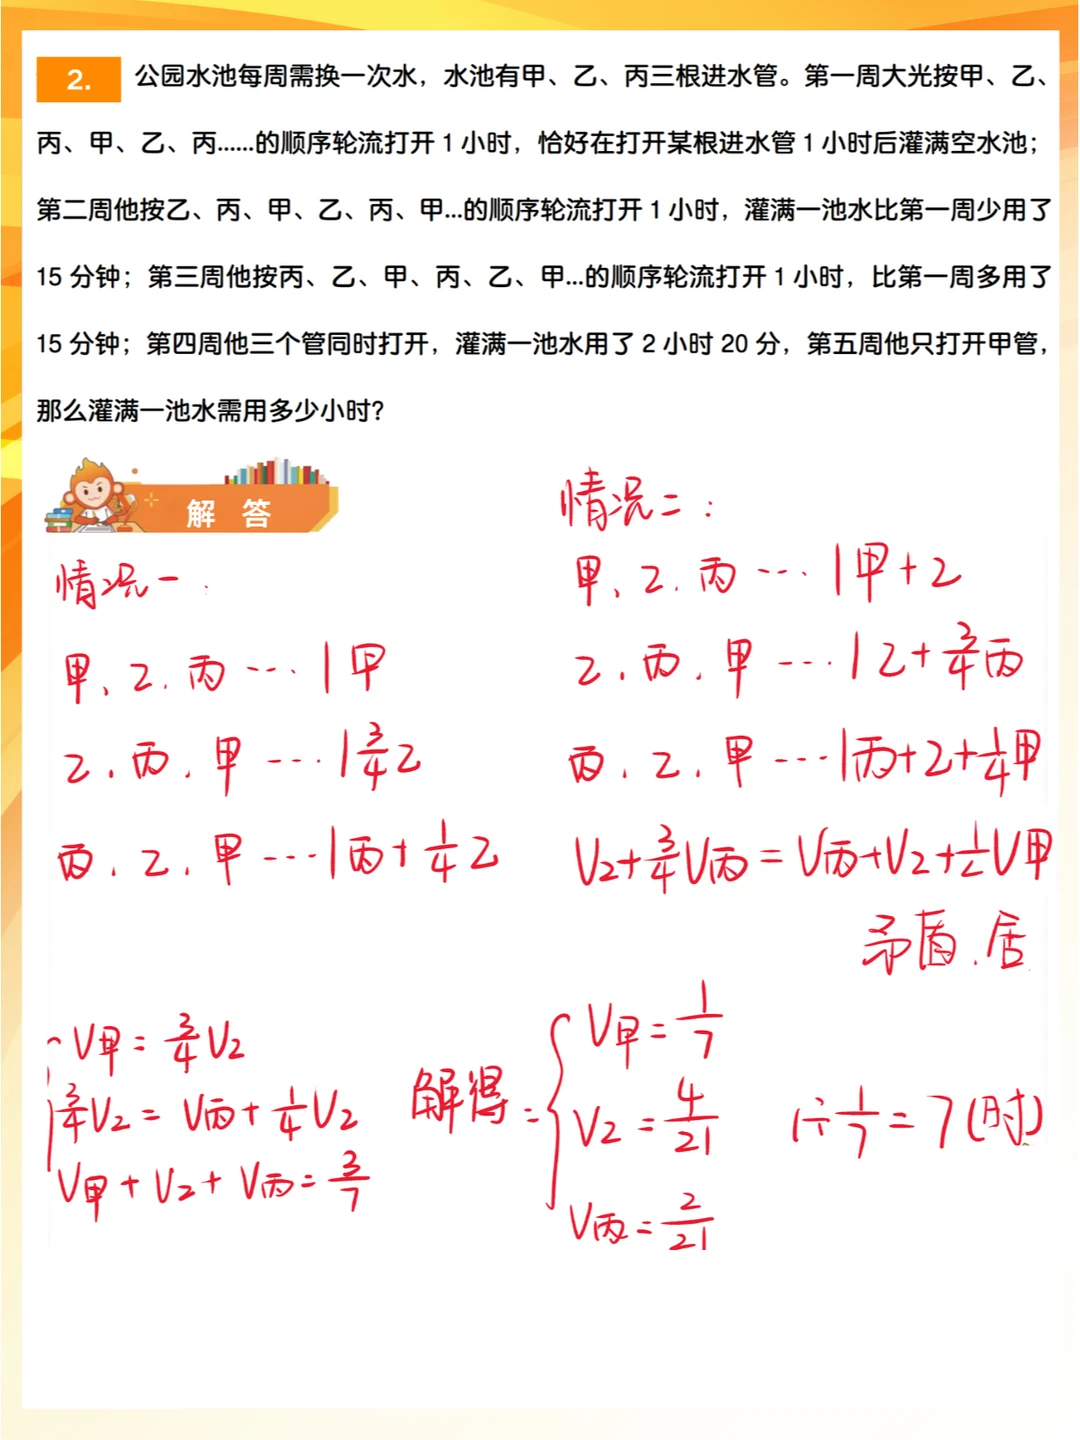 2. 公园水池每周需换一次水，水池有甲、乙、丙三根进水管。第一周大光按甲、乙、
丙、甲、乙、丙......的顺序轮流打开 1 小时，恰好在打开某根进水管 1 小时后灌满空水池；
第二周他按乙、丙、甲、乙、丙、甲...的顺序轮流打开 1 小时，灌满一池水比第一周少用了
15 分钟；第三周他按丙、乙、甲、丙、乙、甲...的顺序轮流打开 1 小时，比第一周多用了
15 分钟；第四周他三个管同时打开，灌满一池水用了 2 小时 20 分，第五周他只打开甲管，
那么灌满一池水需用多少小时？
解 答
情况一：
甲、乙、丙 … | 甲
乙、丙、甲 … | 3/4乙
丙、乙、甲 … | 丙+1/4乙
情况二：
甲、乙、丙 … | 甲+乙
乙、丙、甲 … | 乙+3/4丙
丙、乙、甲 … | 丙+乙+1/4甲
V乙+3/4V丙=V丙+V乙+1/4V甲
矛盾.舍
V甲=3/4V乙
3/4V乙=V丙+1/4V乙
V甲+V乙+V丙=3/7
解得:
V甲=1/7
V乙=4/21
V丙=2/21
1÷1/7=7(时)